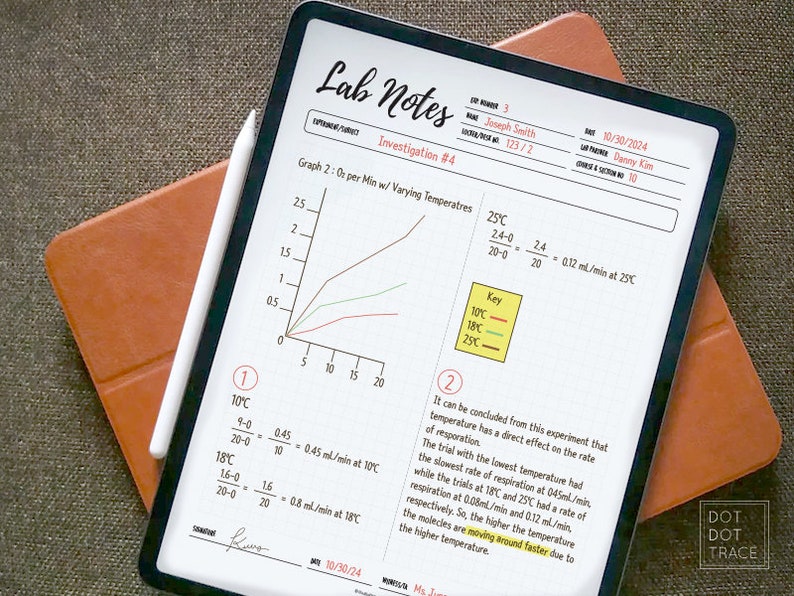 Lab Notes
EXP. NUMBER 3
NAME Joseph Smith
DATE 10/30/2024
LOCKER/DESK NO. 123 / 2
LAB PARTNER Danny Kim
COURSE & SECTION NO 10
EXPERIMENT/SUBJECT
Investigation #4
Graph 2 : O₂ per Min w/ Varying Temperatres
2.5
2
1.5
1
0.5
0
5 10 15 20
1
10℃
9-0/20-0 = 0.45/10 = 0.45 ml/min at 10℃
18℃
1.6-0/20-0 = 1.6/20 = 0.8 ml/min at 18℃
25℃
2.4-0/20-0 = 2.4/20 = 0.12 ml/min at 25℃
Key
10℃
18℃
25℃
2
It can be concluded from this experiment that
temperature has a direct effect on the rate
of resporation.
The trial with the lowest temperature had
the slowest rate of respiration at 045ml/min,
while the trials at 18℃ and 25℃ had a rate of
respiration at 0.08ml/min and 0.12 ml/min,
respectively. So, the higher the temperature
the molecles are moving around faster due to
the higher temperature.
SIGNATURE
DATE 10/30/24
WITNESS/TA Ms.
DOT
DOT
TRACE